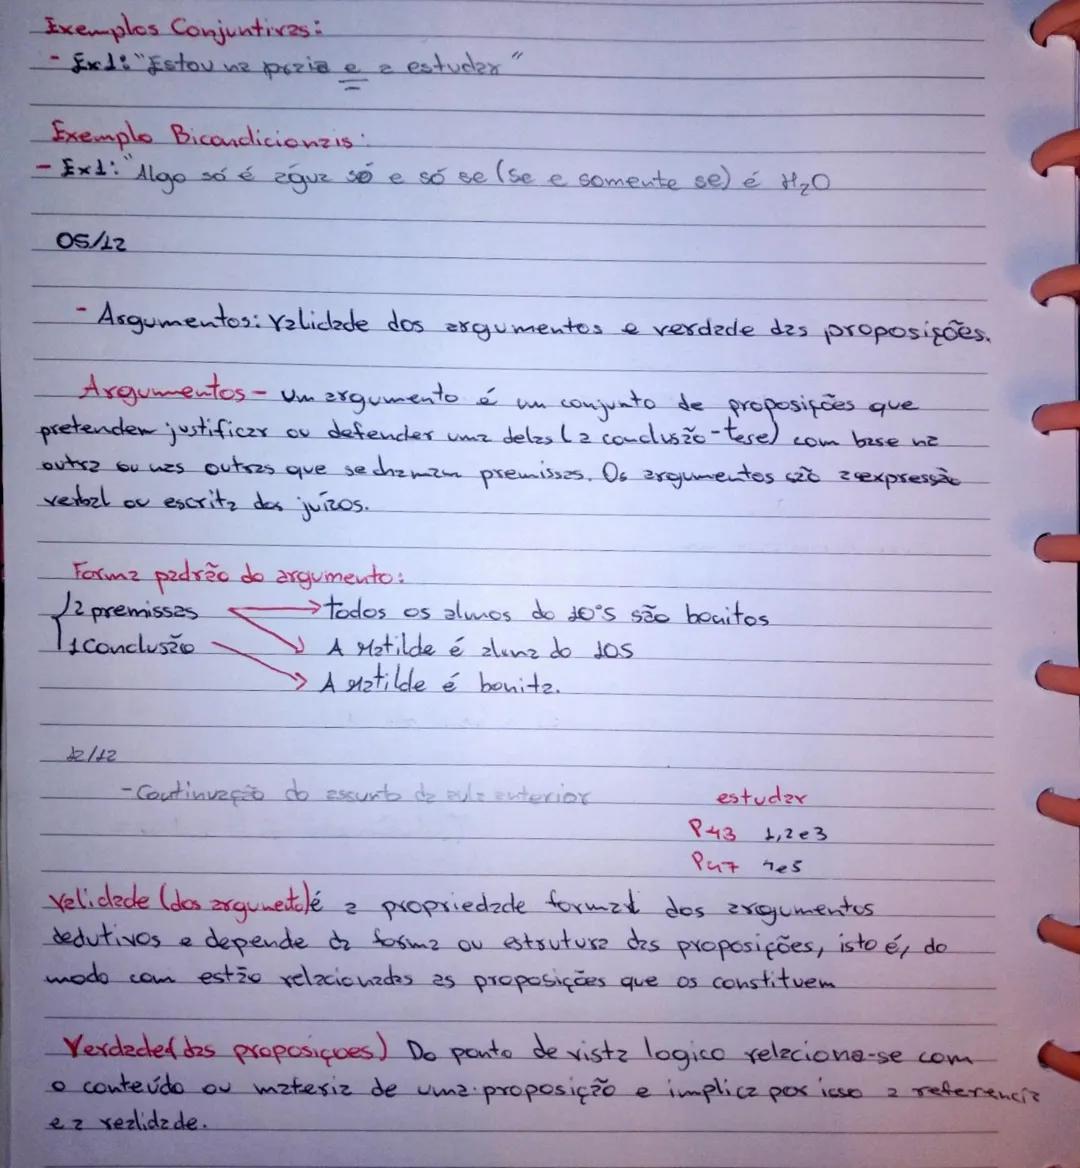 Exemplos Conjuntivas:
- Ex1: "Estou na praia e a estudar"
Exemplo Bicondicionais:
- Ex1: "Algo só é água só e só se (se e somente se) é H₂O
05/12
- Argumentos: Validade dos argumentos e verdade das proposições.
Argumentos - Um argumento é um conjunto de proposições que
pretendem justificar ou defender uma delas (a conclusão-tese) com base na
outra ou nas outras que se chamam premissas. Os argumentos são a expressão
verbal ou escrita dos juízos.
Forma padrão do argumento:
2 premissas → todos os alunos do 10ºS são bonitos
1 Conclusão A Matilde é aluna do 10S
A Matilde é bonita.
12/12
- Continuação do assunto da aula anterior estudar
P43 1,2 e 3
P47 4 e 5
Validade (dos argumeto) é a propriedade formal dos argumentos
dedutivos e depende da forma ou estrutura das proposições, isto é, do
modo com estão relacionadas as proposições que os constituem
Verdade (das proposiçoes) Do ponto de vista logico relaciona-se com
o conteúdo ou materia de uma proposição e implica por isso a referencia
e a realidade.